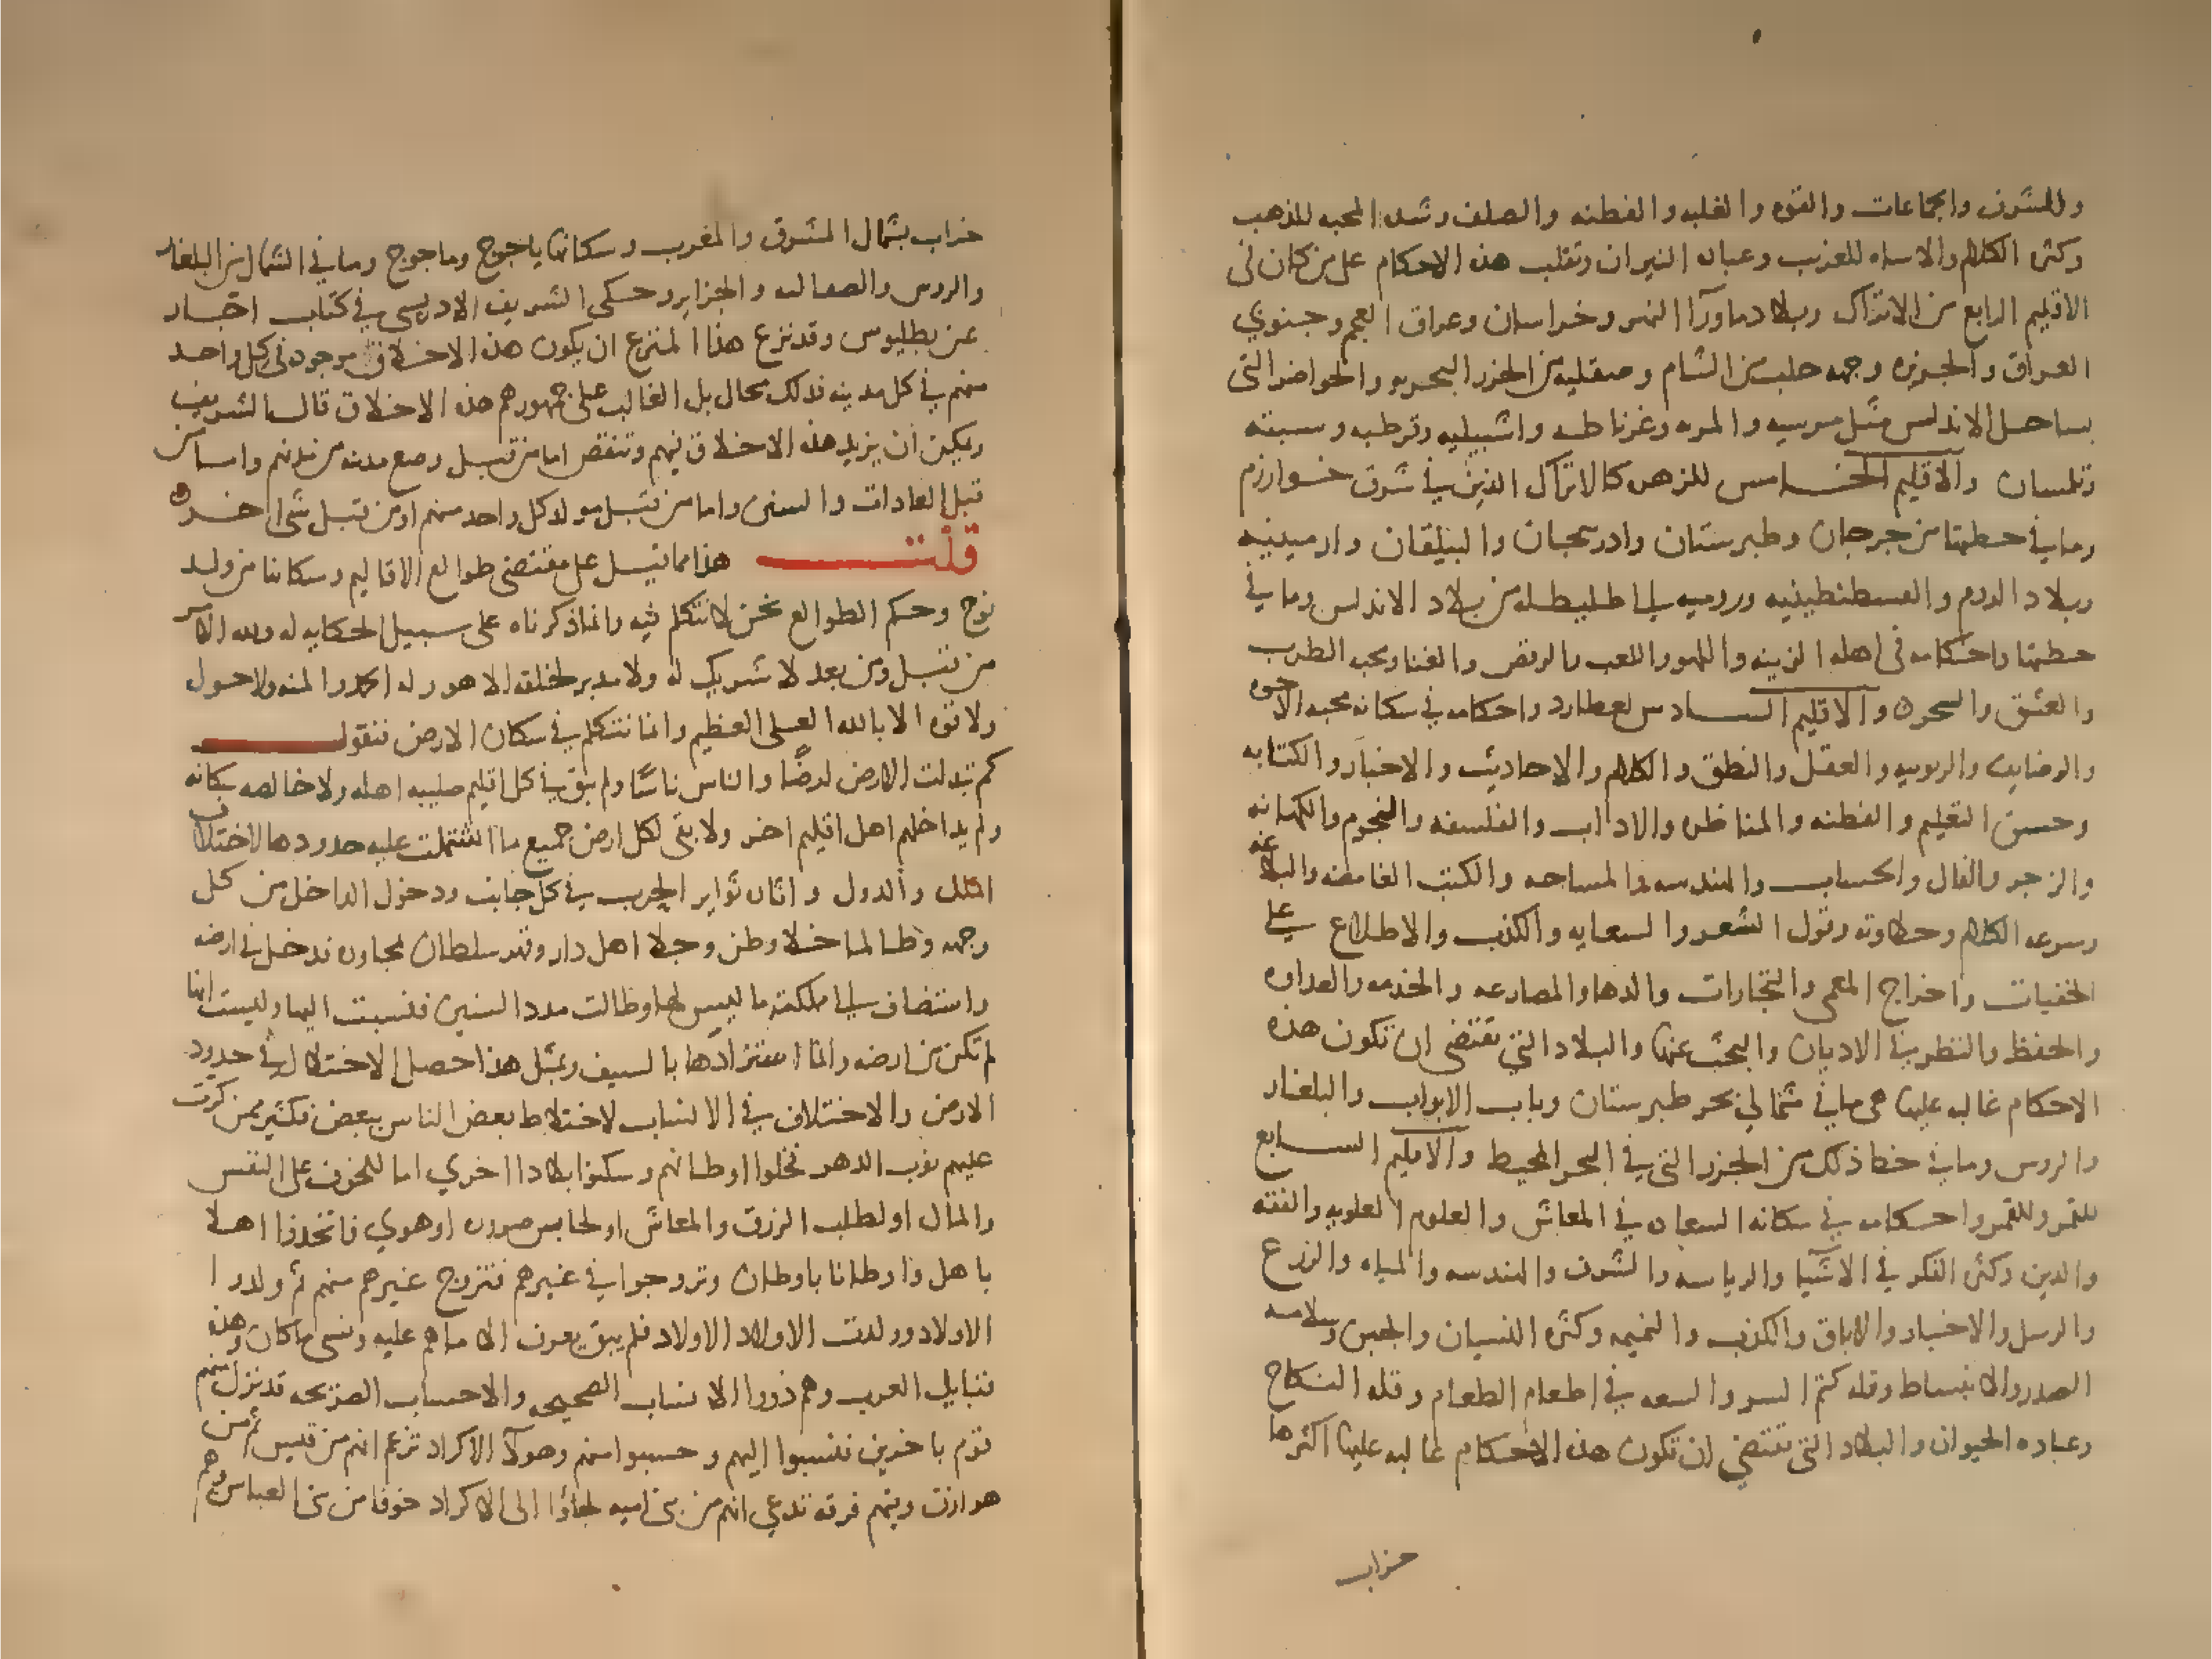 وللشرف والجماعات والقوه والغلبه والفطنه والصلف وشده المحبه للذهب
وكثره الكلام والاساه للغريب وعباده النيران وتغلب هذه الاحكام على من كان في
الاقليم الرابع من الاتراك وبلاد ماورآ النهر وخراسان وعراق العجم وجنوبي
العراق والجزيره وجهه حلب من الشام وصقليه من الجزر البحريه والحواضر التي
بساحل الاندلس مثل مرسيه والمريه وغرناطه واشبيليه وقرطبه وسبته
وتلمسان والاقليم الخامس للزهره كالاتراك الذين في شرق خوارزم
وما في حطتها من جرجان وطبرستان وادربيجان والبيلقان وارمينيه
وبلاد الروم والقسطنطينيه وروميه الى طليطله من بلاد الاندلس وما في
حطتها واحكامه في اهله الزينه واللهو واللعب والرقص والغنا ومحبه الطرب
والعشق والسحره والاقليم السادس لعطارد واحكامه في سكانه محبه الاخوه
والوصايف والربوبيه والعقل والنطق والكلام والاحاديث والاخبار والكتابه
وحسن التعليم والفطنه والمناظره والاداب والفلسفه والنجوم والكهانه
والزجر والفال والحساب والهندسه والمساحه والكتب الغامضه والبلاغه
وسرعه الكلام وحلاوته وقول الشعر والسعايه والكذب والاطلاع على
الخفيات واخراج المعمى والتجارات والدها والمصارعه والخدمه والعداوه
والحفظ والنظر في الاديان والبحث عنها والبلاد التي تقتضي ان تكون هذه
الاحكام غالبه عليها هي ما في شمالي بحر طبرستان وباب الابواب والبلغار
والروس وما في خطا ذلك من الجزر التي في البحر المحيط والاقليم السابع
للقمر وللقمر واحكامه في سكانه السعاده في المعاش والعلوم العلويه والفقه
والدين وكثره الفكر في الاشيا والرياسه والشرف والهندسه والمياه والزرع
والرسل والاخبار والاباق والكذب والنميمه وكثره النسيان والجبن وسلامه
الصدر والانبساط وقله كتم السر والسعه في اطعام الطعام وقله النكاح
وعباده الحيوان والبلاد التي تقتضي ان تكون هذه الاحكام غالبه عليها اكثرها
خراب
خراب بشمال المشرق والمغرب وسكانها ياجوج وماجوج وما في الشمال من البلغار
والروس والصقالبه والجزاير وحكى الشريف الادريسي في كتاب اخبار
عن بطليوس وقد نزع هذا المنزع ان يكون هذه الاخلاق موجوده في كل واحد
منهم في كل مدينه فذلك محال بل الغالب على جمهورهم هذه الاخلاق قال الشريف
ويمكن ان يزيد هذه الاخلاق فيهم وتنقص اما من قبل وضع مدنه من مدنهم واما من
قبل العادات والسنن واما من قبل مولد كل واحد منهم او من قبل شي اخر
قلت هذا مما قيل على مقتضى طوالع الاقاليم وسكانها من ولد
نوح وحكم الطوالع نحن لا نتكلم فيه وانما ذكرناه على سبيل الحكايه له ولله الامر
من قبل ومن بعد لا شريك له ولا مدبر لخلقه الا هو وله الحمد والمنه ولا حول
ولا قوه الا بالله العلي العظيم وانما نتكلم في سكان الارض فنقول
كم تبدلت الارض ارضًا والناس ناسًا ولم يبق في كل اقليم صليبه اهله ولا خالصه سكانه
ولم يداخلهم اهل اقليم اخر ولا بقى لكل ارض جميع ما اشتملت عليه حدودها لاختلاف
الملل والدول واثاره ثواير الحرب في كل جانب ودخول الداخل من كل
وجهه وطالما خلا وطن وجلا اهل دار وقهر سلطان مجاوره فدخل في ارضه
واستضاف الى مملكته ما ليس لها وطالت مدد السنين فنسبت اليها وليست انها
لم تكن من ارضه وانما استزادها بالسيف وبمثل هذا حصل الاختلال في حدود
الارض والاختلاف في الانساب لاختلاط بعض الناس ببعض فكثير ممن كرّت
عليهم نوب الدهر فخلوا اوطانهم وسكنوا بلادا اخري اما للخوف على النفس
والمال او لطلب الرزق والمعاش او لحابس صوره او هوي فاتخذوا اهلا
باهل واوطانا باوطان وتزوجوا في غيرهم فتزوج غيرهم منهم ثم ولدوا
الاولاد وولدت الاولاد الاولاد فلم يبق يعرف الا ما هم عليه ونسي ما كان وهذه
قبايل العرب وهم ذووا الانساب الصحيحه والاحساب الصريحه قد نزل منهم
قوم باخرين فنسبوا اليهم وحسبوا منهم وهولآ الاكراد تزعم انهم من قيس ثم من
هوازن ومنهم فرقه تدعي انهم من بني اميه لجاوا الى الاكراد خوفا من بني العباس وهم